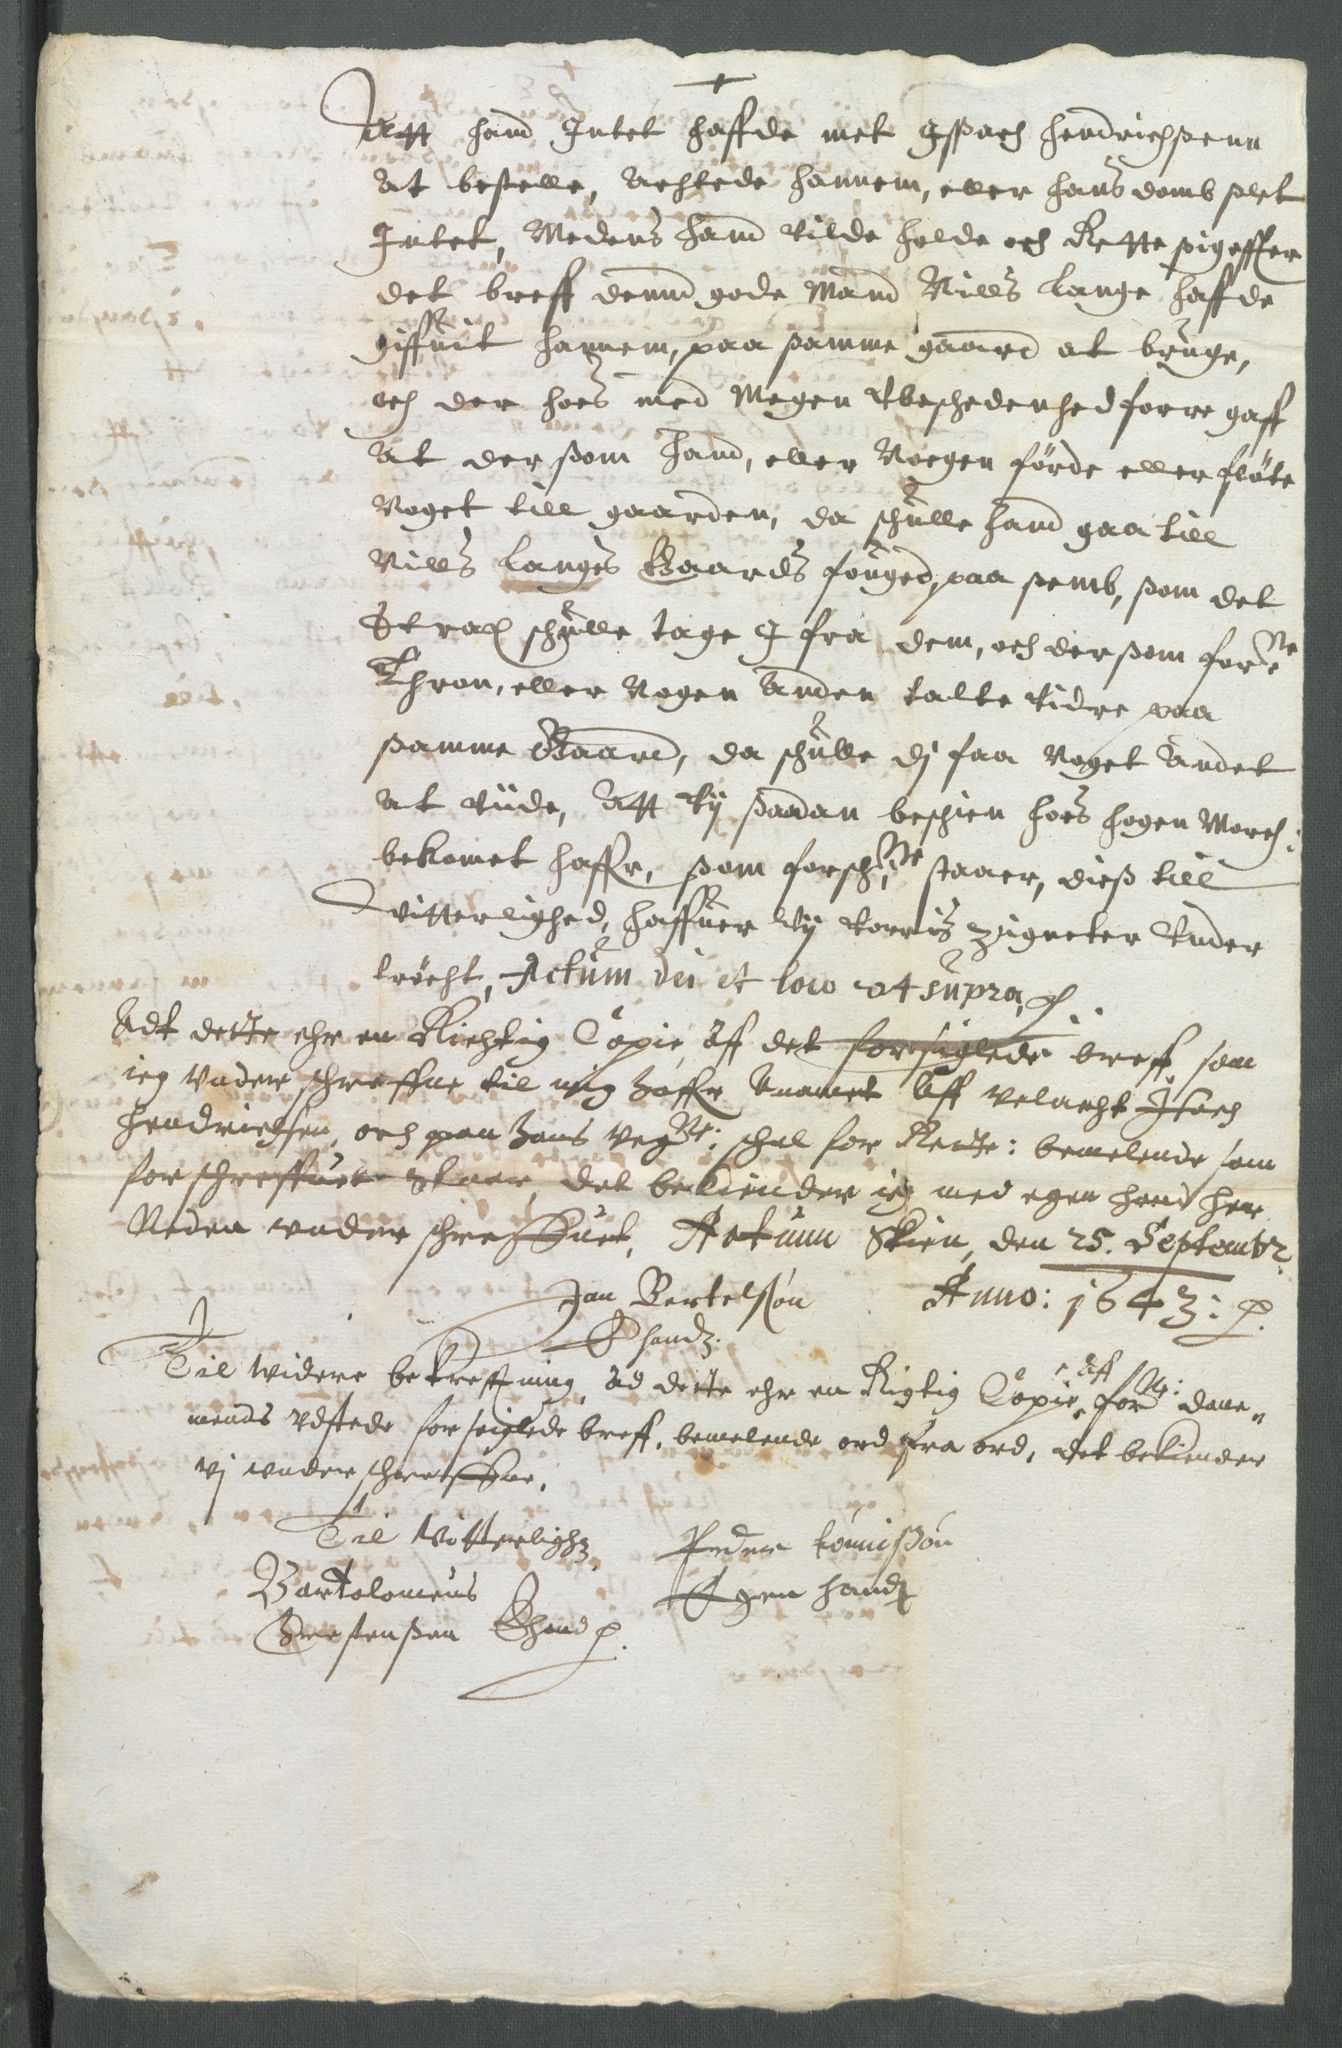 Att hand Intet haffde met Issach hendrichsenn
at bestelle, achtede hannem, eller hans domb slet
Intet, Medens hand vilde holde och Rette sig effter
det breff dennd gode Mand Nills Lange haffde
giffuit hannem, paa samme gaard at bruge,
och der hoes med Megen Vbeschedenhed forre gaff
at der som hand, eller Noegen förde eller fløte
Noget till gaarden, da schulle hand gaa till
Nills Langes Gaards fouged, paa semb, som det
Strax schulle tage I fra dem, och der som forne
Thron, eller Nogen anden talte videre paa
samme Gaard, da schulle dj faa Noget andet
at viide, Att vij saadan beschien hoes hogen Morch:
bekomet haffr, som forschne staaer, dis till
vitterlighed, haffuer Vij vorris zigneter Vnder
tröcht, Actum die et loco ut supra
Adt dette ehr en Richtig Copie, aff det forsiglede breff som
ieg vnder schreffne til mig haffr Annamet aff velacht Isach
hendrichsen, och paa hans vegne: schal for Rette: bemelende som
forschreffuet staar, det bekiender ieg med egen hand her
Neden vnder schreffuet, Actum Skien, den 25. Septembr.
Jan Bertelsøn Anno: 1643:
E hand
Til widere bekrefftning, ad dette ehr en Rigtig Copie, aff forne: dane„
mends vdstede forseiglede breff, bemelende ord fra ord, det bekiender
vj vnder schreffne,
Til Vitterlighed Peder tönnisøn
Bartolomeus Egen hand
Krestensen E hand